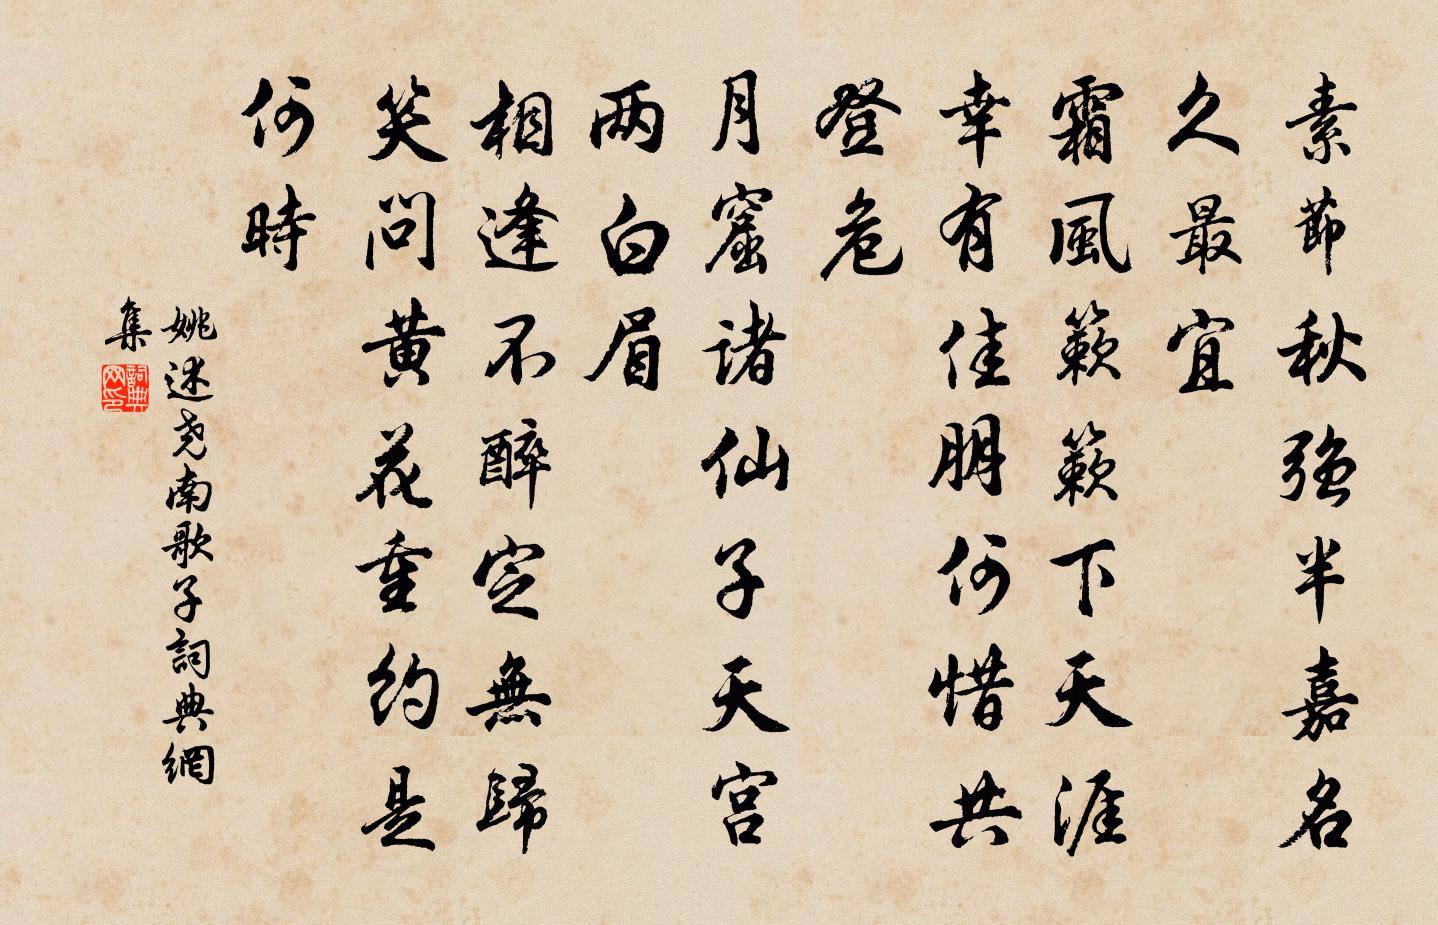 素節秋強半嘉名
久最宜
霜風簌簌下天涯
幸有佳朋何惜共
登危
月窟諸仙子天宮
兩白眉
相逢不醉定無歸
笑問黄花重約是
何時
姚述尧南歌子詞典網
集
詞典网印